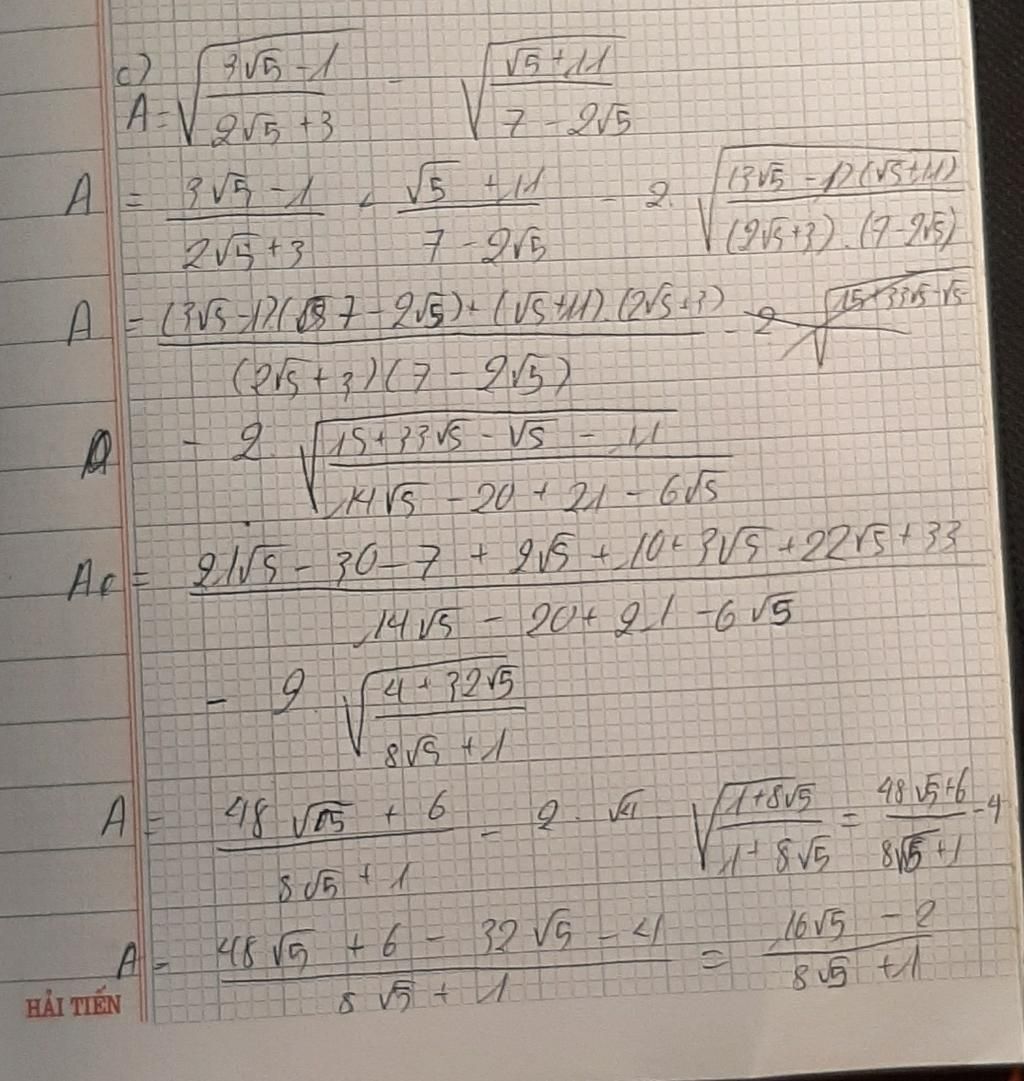 c)
A = √((3√5 - 1)/(2√5 + 3)) - √((√5 + 11)/(7 - 2√5))
A = (3√5 - 1)/(2√5 + 3) + (√5 + 11)/(7 - 2√5) - 2. √((3√5 - 1)(√5 + 11)/((2√5 + 3).(7 - 2√5)))
A = ((3√5 - 1)(7 - 2√5) + (√5 + 11).(2√5 + 3))/((2√5 + 3)(7 - 2√5))
- 2. √((15 + 33√5 - √5 - 11)/(14√5 - 20 + 21 - 6√5))
A = (21√5 - 30 - 7 + 2√5 + 10 + 3√5 + 22√5 + 33)/(14√5 - 20 + 21 - 6√5)
- 2. √((4 + 32√5)/(8√5 + 1))
A = (48√5 + 6)/(8√5 + 1) - 2. √4 √((1 + 8√5)/(1 + 8√5)) = (48√5 + 6)/(8√5 + 1) - 4
A = (48√5 + 6 - 32√5 - 4)/(8√5 + 1) = (16√5 - 2)/(8√5 + 1)
HẢI TIẾN